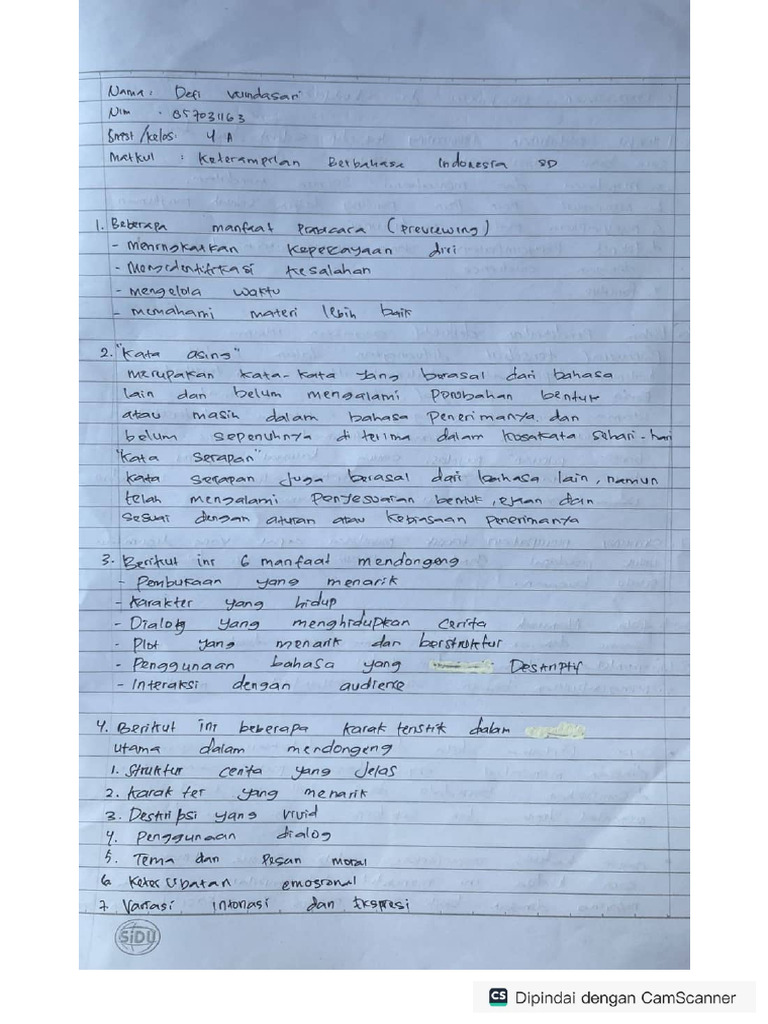 Nama : Defi wundasari
Nim : 857031163
Smst/kelas : 4 A
Matkul : Keterampilan Berbahasa Indonesia SD
1. Beberapa manfaat Prabicara (Previewing)
- Meningkatkan kepercayaan diri
- Mengidentifikasi kesalahan
- mengelola waktu
- memahami materi lebih baik
2. "Kata asing"
merupakan kata-kata yang berasal dari bahasa
lain dan belum mengalami perubahan bentuk
atau masih dalam bahasa penerimanya dan
belum sepenuhnya di terima dalam kosakata sehari-hari
"Kata serapan"
kata serapan juga berasal dari bahasa lain, namun
telah mengalami penyesuaian bentuk, ejaan dan
sesuai dengan aturan atau kebiasaan penerimanya
3. Berikut ini 6 manfaat mendongeng
- Pembukaan yang menarik
- Karakter yang hidup
- Dialog yang menghidupkan cerita
- Plot yang menarik dan berstruktur
- Penggunaan bahasa yang Deskriptif
- Interaksi dengan audience
4. Berikut ini beberapa karakteristik dalam
utama dalam mendongeng
1. Struktur cerita yang jelas
2. Karakter yang menarik
3. Deskripsi yang vivid
4. Penggunaan dialog
5. Tema dan Pesan moral
6. Keterlibatan emosional
7. Variasi intonasi dan Ekspresi
SiDU
CS Dipindai dengan CamScanner